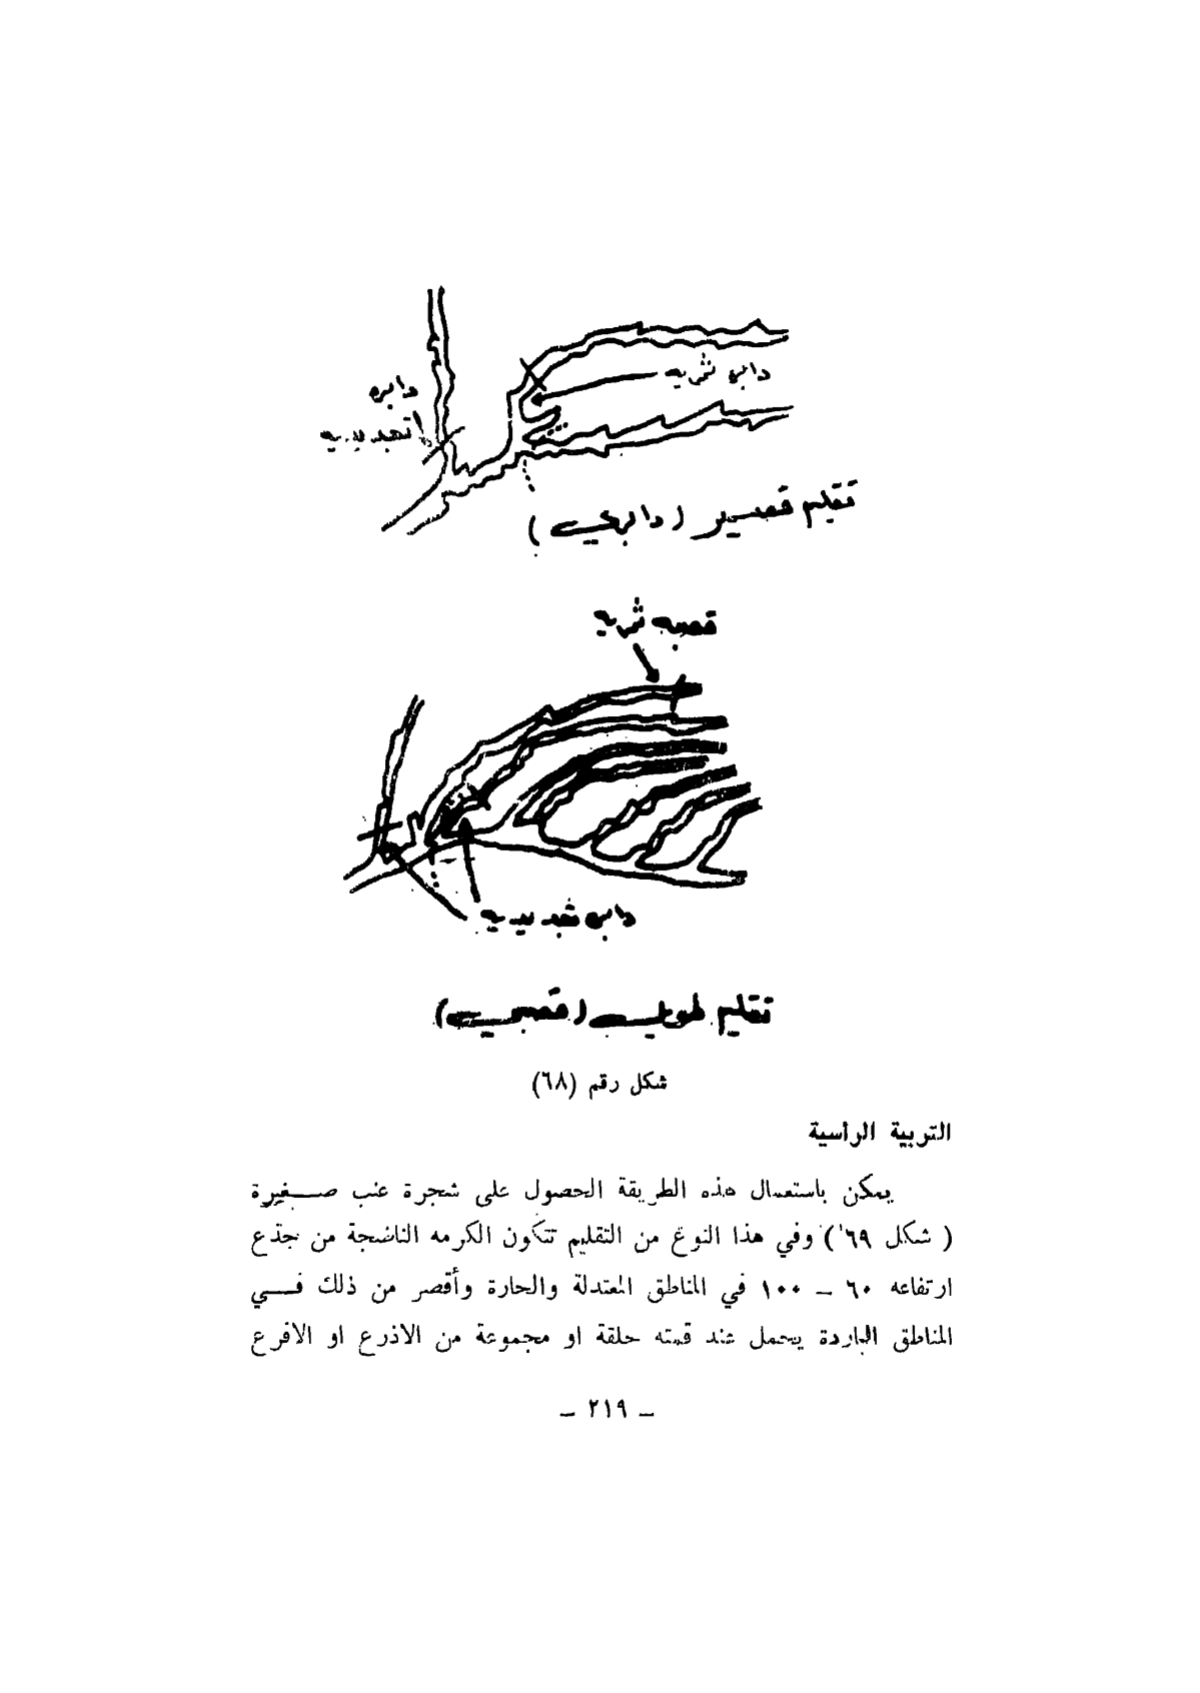 دابره ثمريه
دابره
تجديديه
تقليم قصير (دابري)
قصبه ثمريه
دابره تجديديه
تقليم طويل (قصبي)
شكل رقم (٦٨)
التربية الرأسية
يمكن باستعمال هذه الطريقة الحصول على شجرة عنب صغيرة
( شكل ٦٩ ) وفي هذا النوع من التقليم تتكون الكرمه الناضجة من جذع
ارتفاعه ٦٠ – ١٠٠ في المناطق المعتدلة والحارة وأقصر من ذلك في
المناطق الباردة يحمل عند قمته حلقة او مجموعة من الاذرع او الافرع
– ٢١٩ –